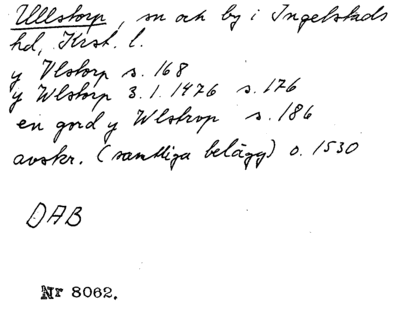 Ullstorp, sn och by i Ingelstads
hd, Krst. l.
y Vlstorp s. 168
y Wlstorp 3.1.1476 s. 176
en gord y Wlstrop s. 186
avskr. (samtliga belägg) o. 1530
DAB
Nr 8062.